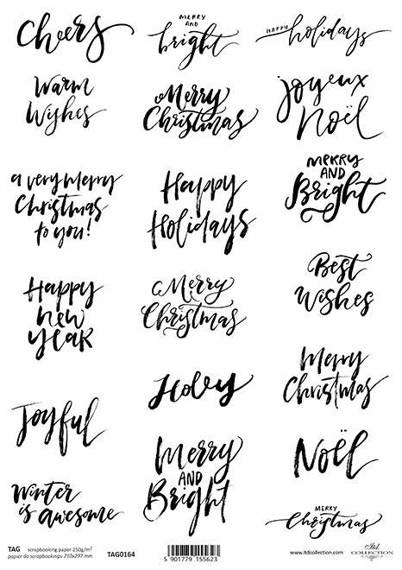 Cheers
MERRY
AND
bright
HAPPY holidays
Warm
Wishes
Merry
Christmas
Joyeux
Noël
a very merry
Christmas
to you!
Happy
Holidays
MERRY
AND
Bright
Happy
new
year
Merry
Christmas
Best
Wishes
Joyful
Holey
Merry
Christmas
Winter
is awesome
Merry
AND
Bright
Noël
MERRY
Christmas
TAG scrapbooking paper 250g/m²
papier do scrapbookingu 210x297 mm
TAG0164
5 901779 155623
www.itdcollection.com
itd
COLLECTION